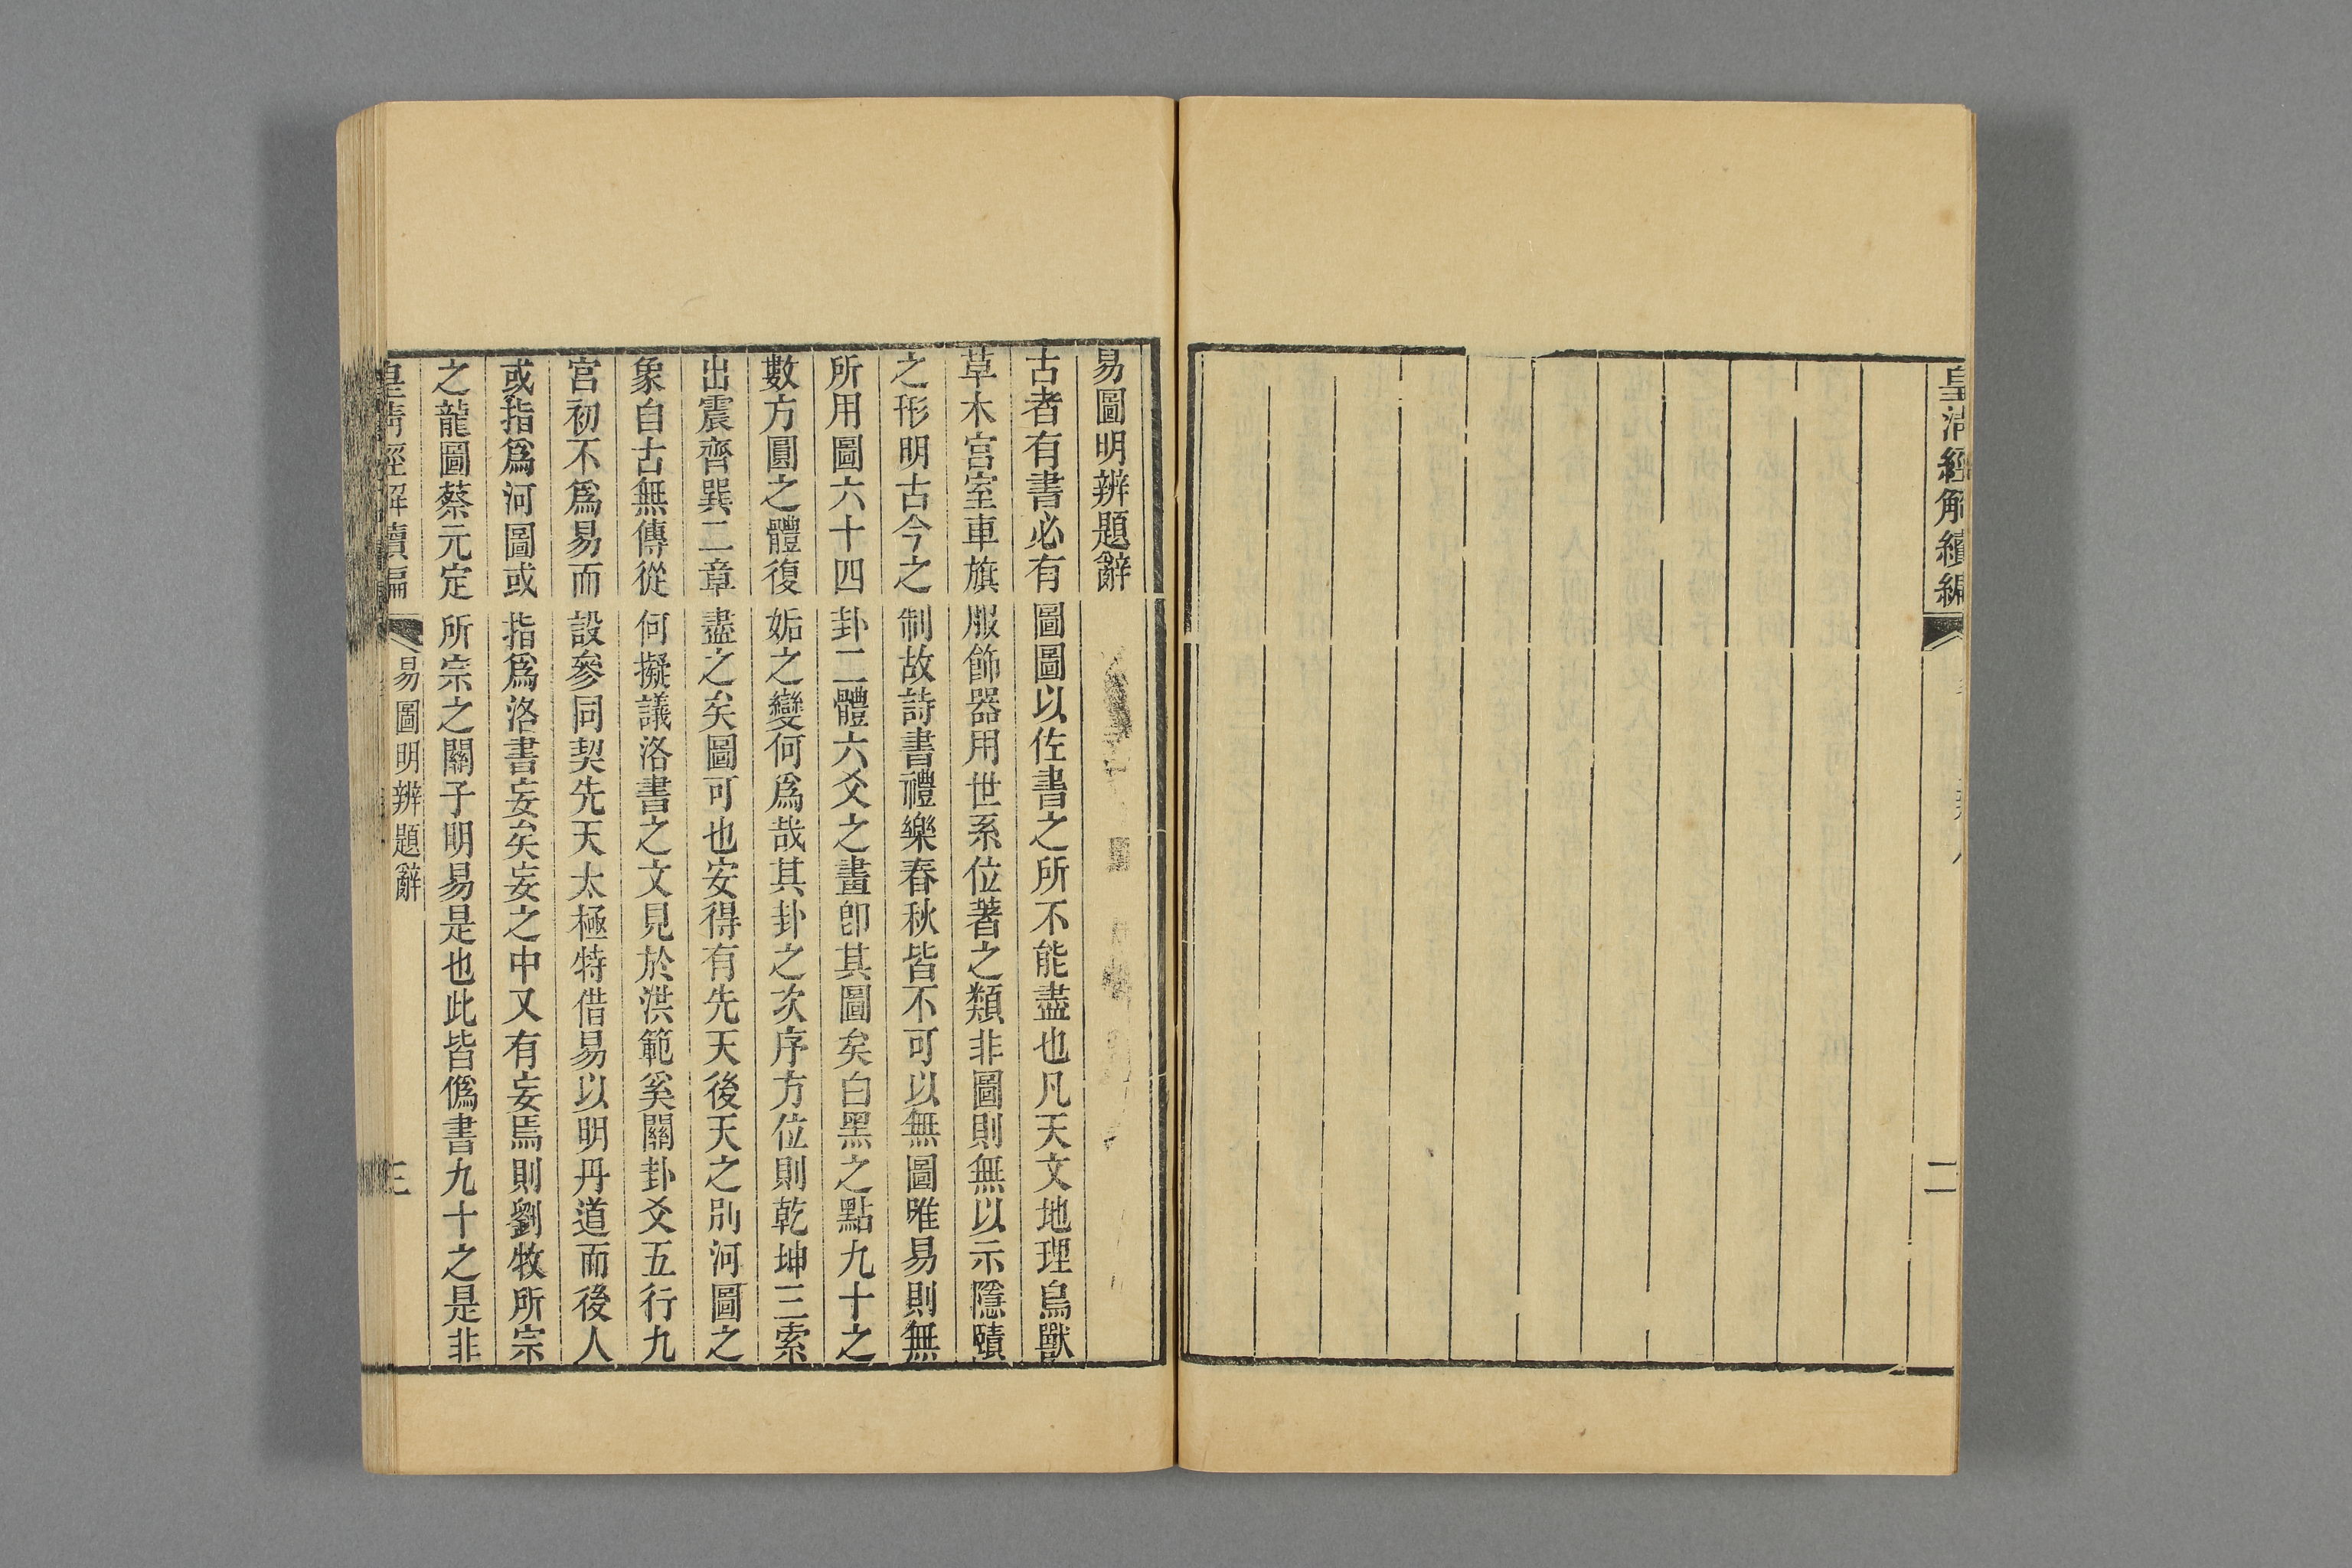 皇清經解續編
二
易圖明辨題辭
古者有書必有圖圖以佐書之所不能盡也凡天文地理鳥獸
草木宮室車旗服飾器用世系位著之類非圖則無以示隱賾
之形明古今之制故詩書禮樂春秋皆不可以無圖唯易則無
所用圖六十四卦二體六爻之畫卽其圖矣白黑之點九十之
數方圓之體復姤之變何爲哉其卦之次序方位則乾坤三索
出震齊巽二章盡之矣圖可也安得有先天後天之別河圖之
象自古無傳從何擬議洛書之文見於洪範奚關卦爻五行九
宮初不爲易而設參同契先天太極特借易以明丹道而後人
或指爲河圖或指爲洛書妄矣妄之中又有妄焉則劉牧所宗
之龍圖蔡元定所宗之關子明易是也此皆僞書九十之是非
皇清經解續編
易圖明辨題辭
三